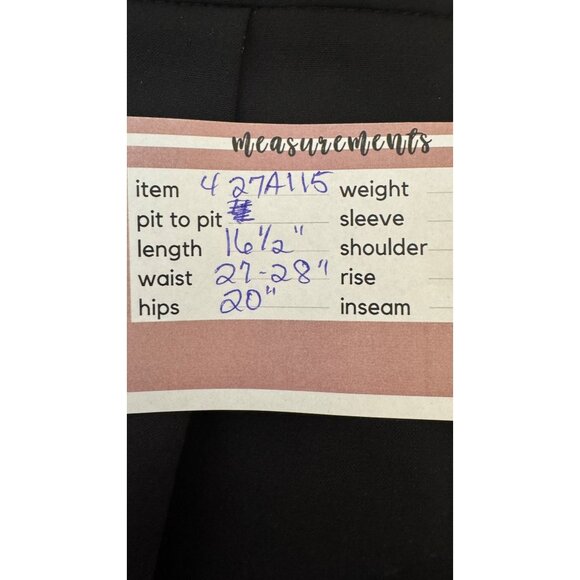 measurements
item 4 27A115 weight
pit to pit sleeve
length 16 1/2" shoulder
waist 27-28" rise
hips 20" inseam